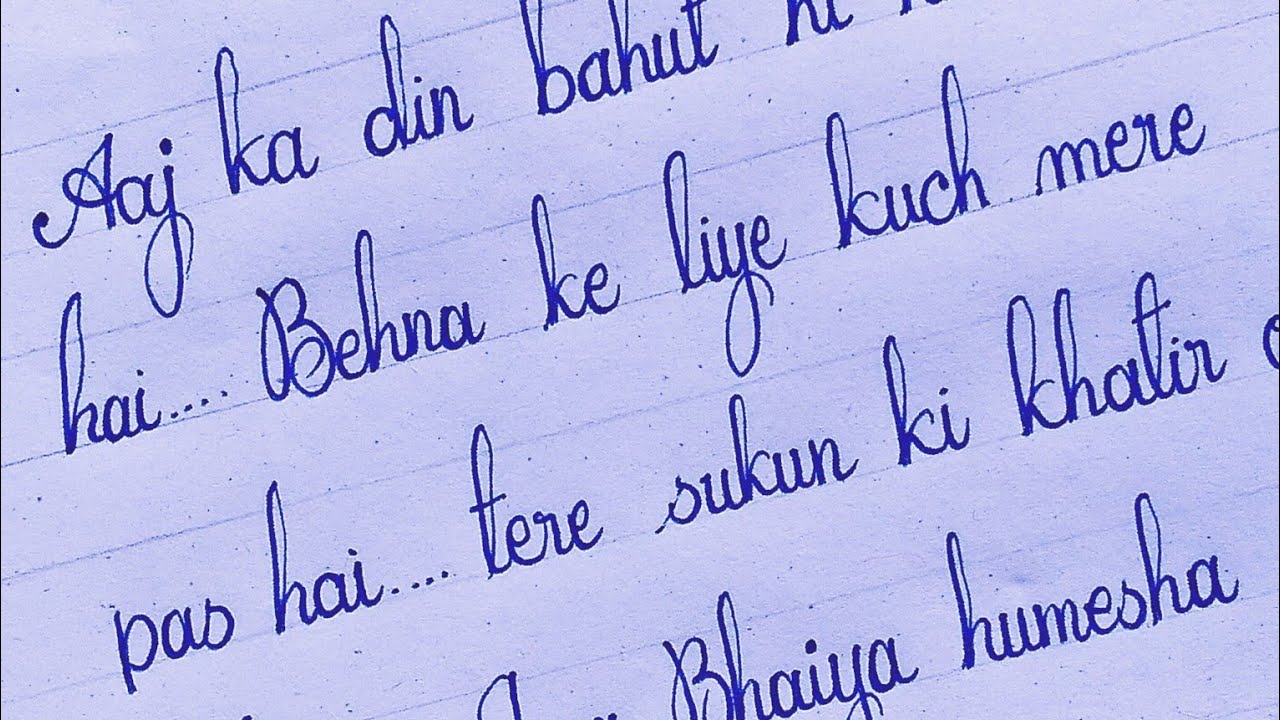 Aaj ka din bahut hi
hai.... Behna ke liye kuch mere
pas hai.... tere sukun ki khatir
Bhaiya humesha